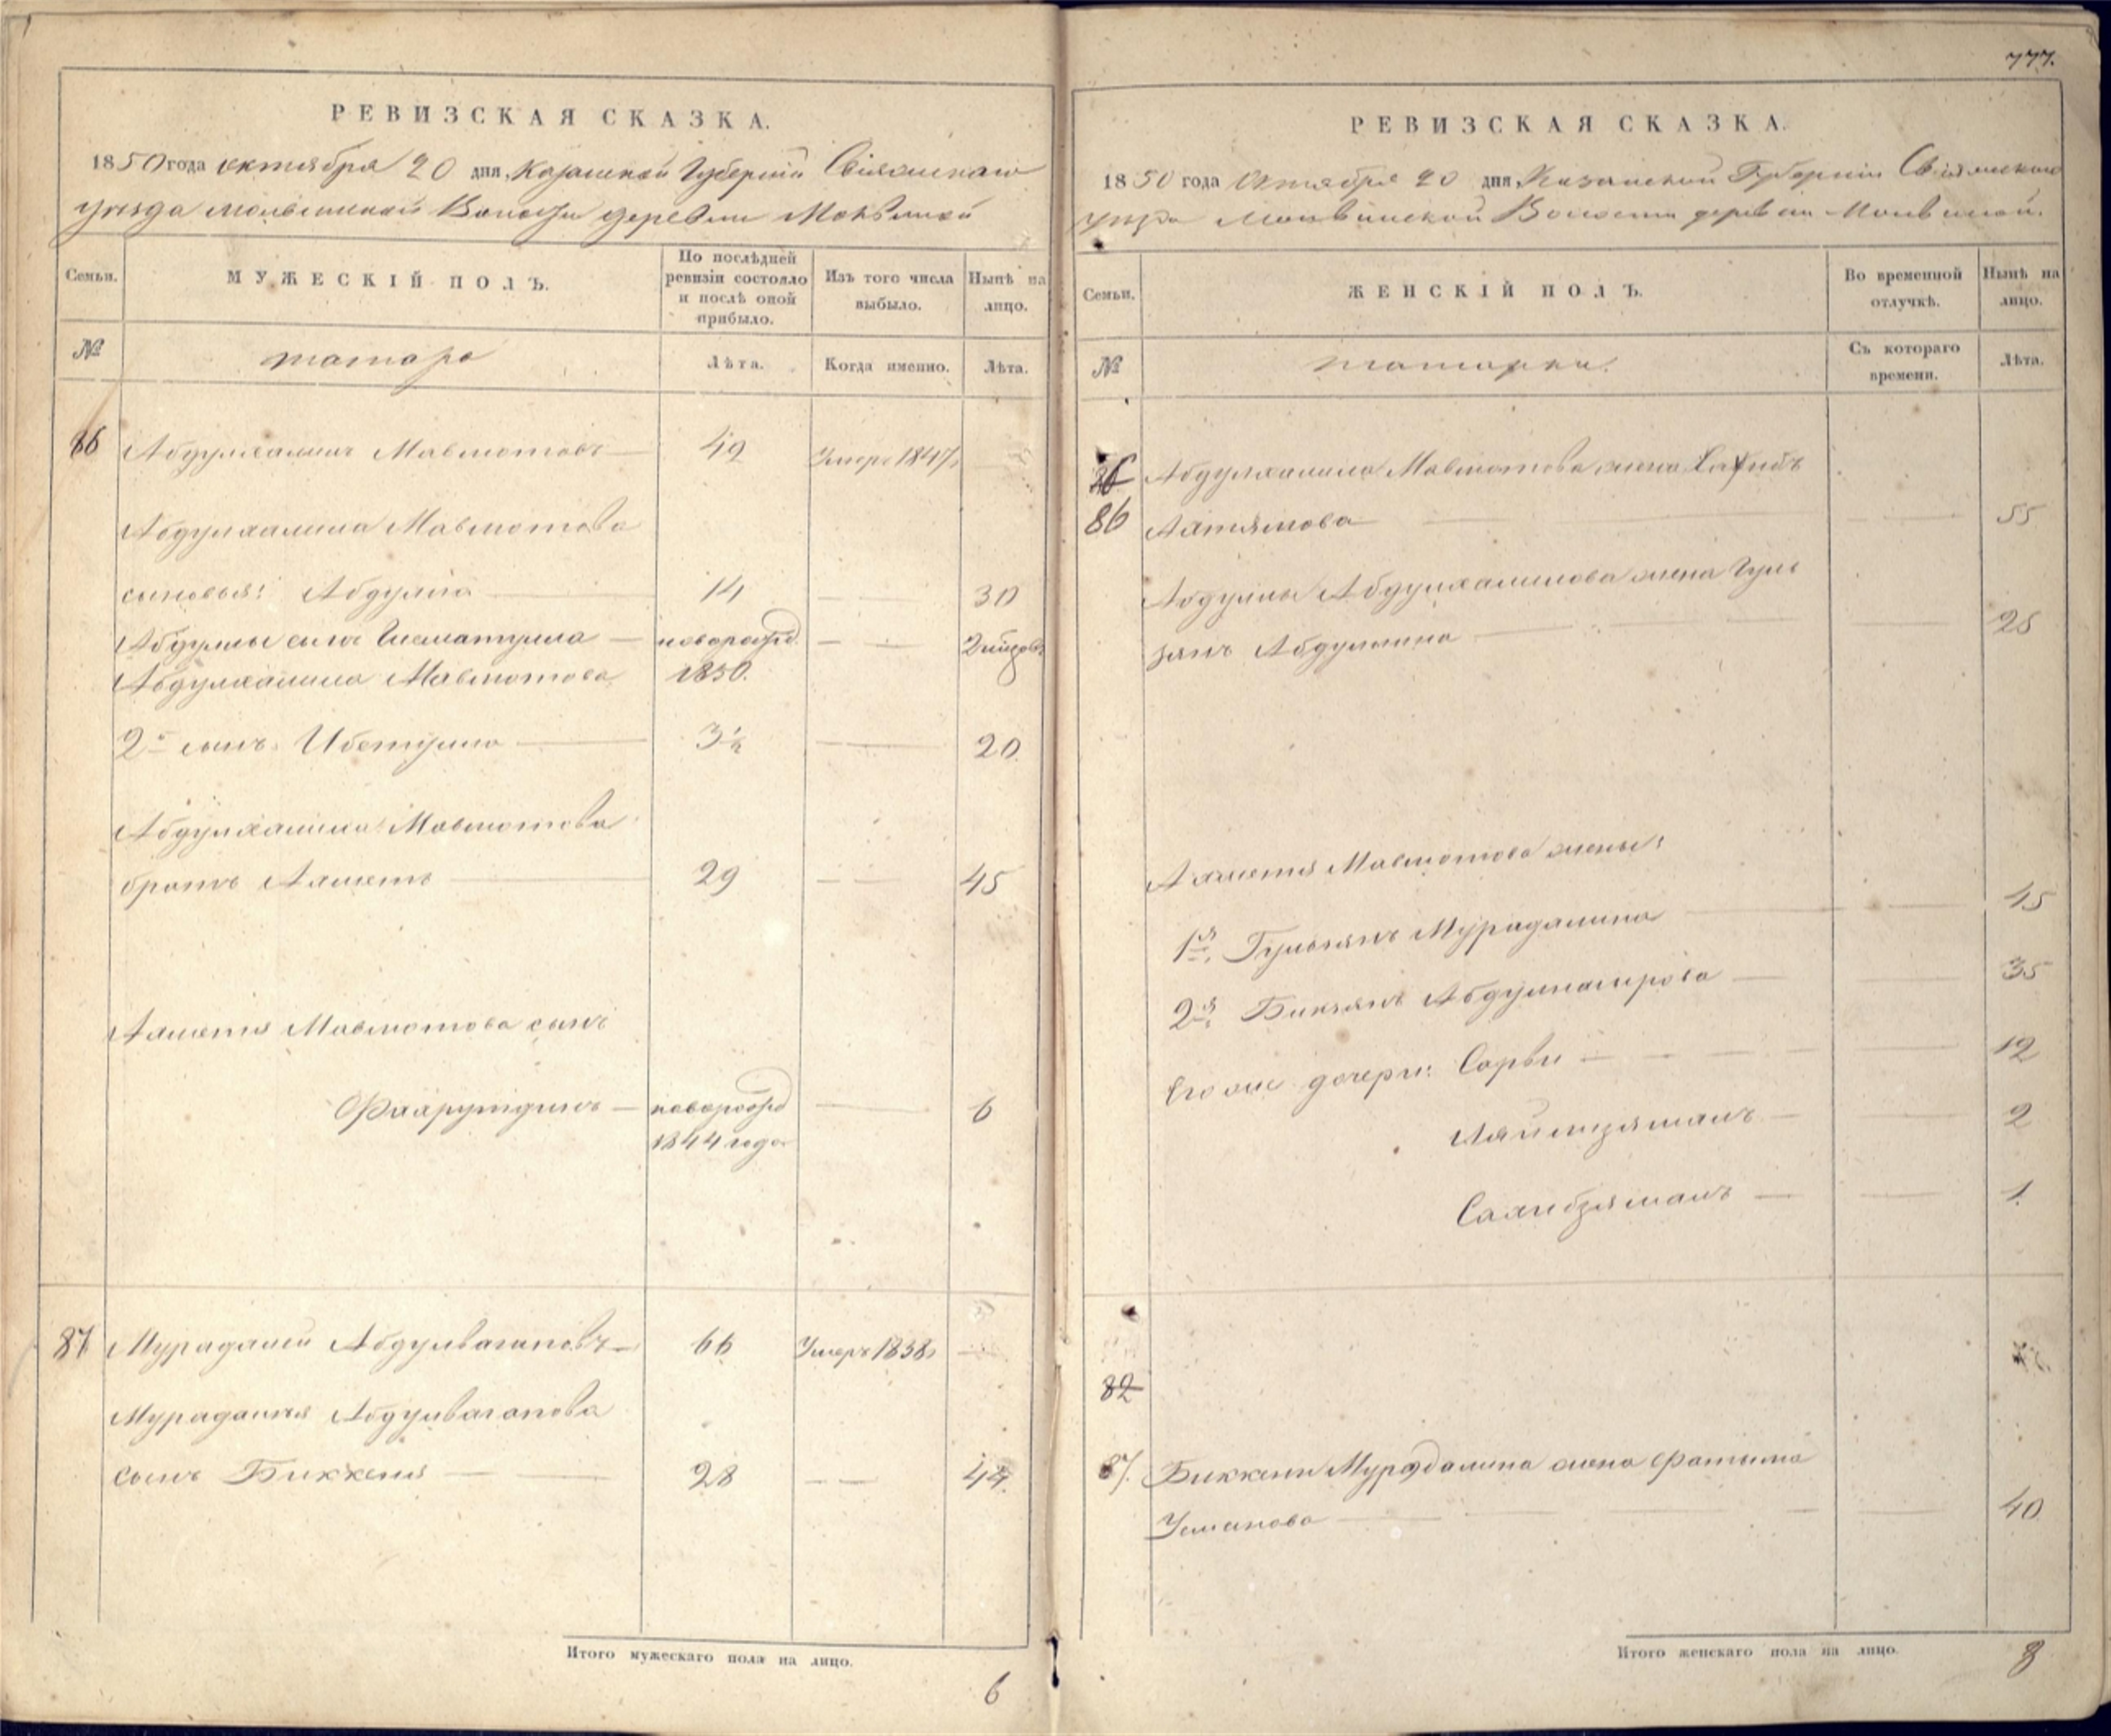 РЕВИЗСКАЯ СКАЗКА.
1850 года октября 20 дня, Казанской Губернии Свіяжскаго
уезда Молвинской Волости деревни Молвиной
Семьи.
МУЖЕСКІЙ ПОЛЪ.
По послѣдней ревизіи состояло и послѣ оной прибыло.
Изъ того числа выбыло.
Нынѣ на лицо.
№
татары
Лѣта.
Когда именно.
Лѣта.
86 Абдулхалилъ Мавлютовъ 49 Умеръ 1847
Абдулхалила Мавлютова
сыновья: Абдулла 14 30
Абдуллы сынъ новорожд.
Абдулхалила Мавлютова 1850.
2й сынъ 3½ 20
Абдулхалила Мавлютова
братъ Ахметъ 29 45
Ахметя Мавлютова сынъ
Фахрутдинъ новорожд 6
1844 года
87 Мурадалей Абдулвагаповъ 66 Умеръ 1838
Мурадалея Абдулвагапова
сынъ Биккеня 28 44
Итого мужескаго пола на лицо.
6
777.
РЕВИЗСКАЯ СКАЗКА.
1850 года Октября 20 дня, Казанской Губерніи Свіяжскаго
Молвинской Волости деревни Молвиной.
Семьи.
ЖЕНСКІЙ ПОЛЪ.
Во временной отлучкѣ.
Нынѣ на лицо.
№
татарки.
Съ котораго времени.
Лѣта.
Абдулхалила Мавлютова жена
86 Ахтямова 55
Абдуллы Абдулхалилова жена Гуль
зянъ Абдуллина 28
Ахметя Мавлютова жены:
1я, Гульзянъ Мурадалина 45
2я, Бикзянъ 35
Его же дочери: Сарви 12
2
Сахибзяманъ 1
82
87. Биккени Мурадалина жена Фатыма
Усманова 40
Итого женскаго пола на лицо.
8